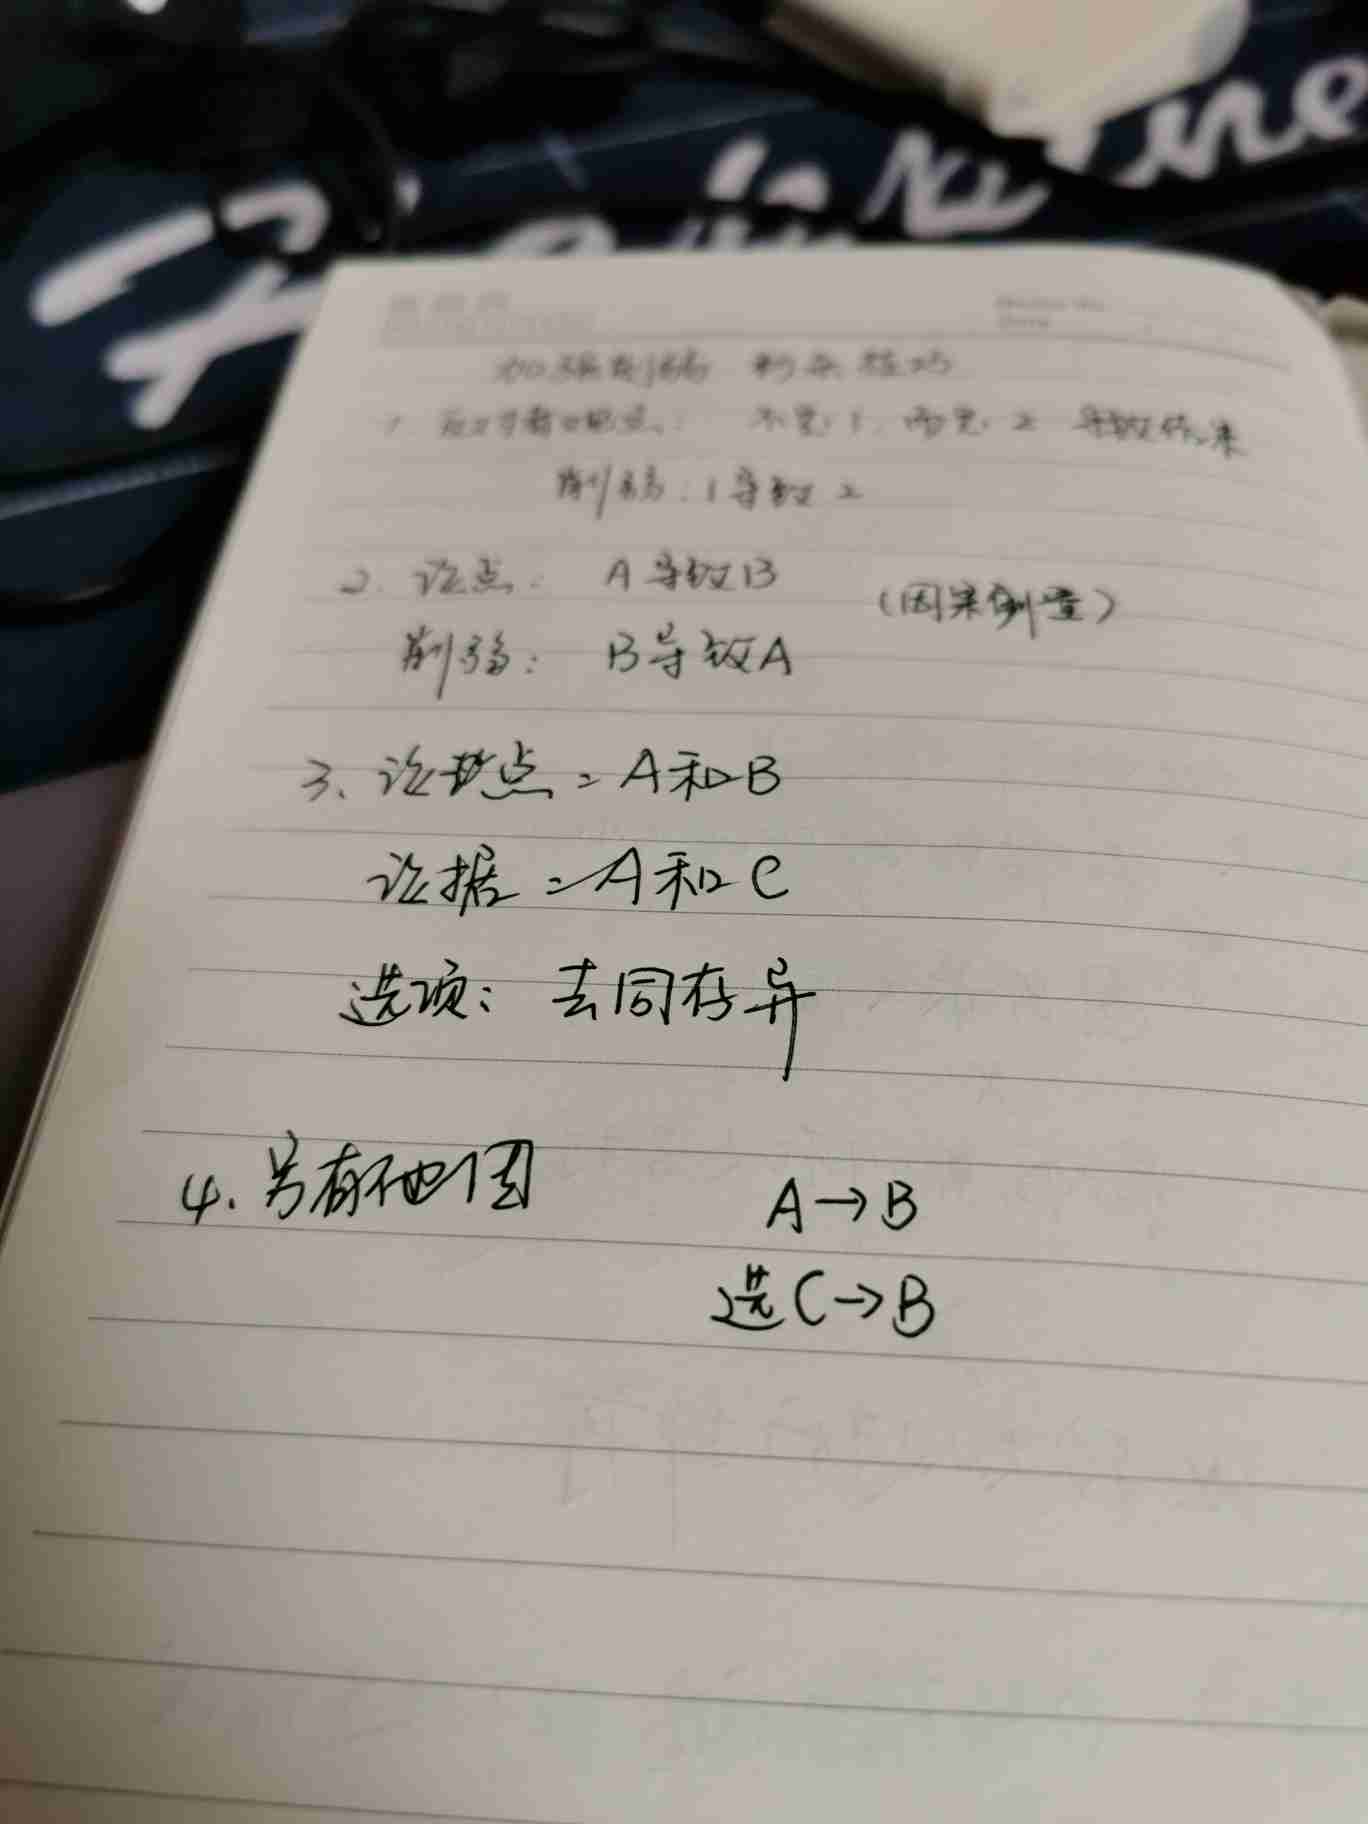 加强削弱 秒杀技巧
1. 反对者观点: 不是1,而是2 导致结果
削弱:1导致2
2. 论点: A导致B (因果倒置)
削弱: B导致A
3、论点:A和B
论据:A和C
选项:去同存异
4.另有他因 A→B
选C→B